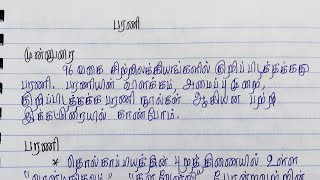 பரணி
முன்னுரை
96 வகை சிற்றிலக்கியங்களில் குறிப்பிடத்தக்கது
பரணி. பரணியின் விளக்கம், அமைப்பு முறை,
குறிப்பிடத்தக்க பரணி நூல்கள் ஆகியன பற்றி
இக்கட்டுரையில் காண்போம்.
பரணி
* தொல்காப்பியத்தின் புறத்திணையில் உள்ள
போன்றவற்றின்